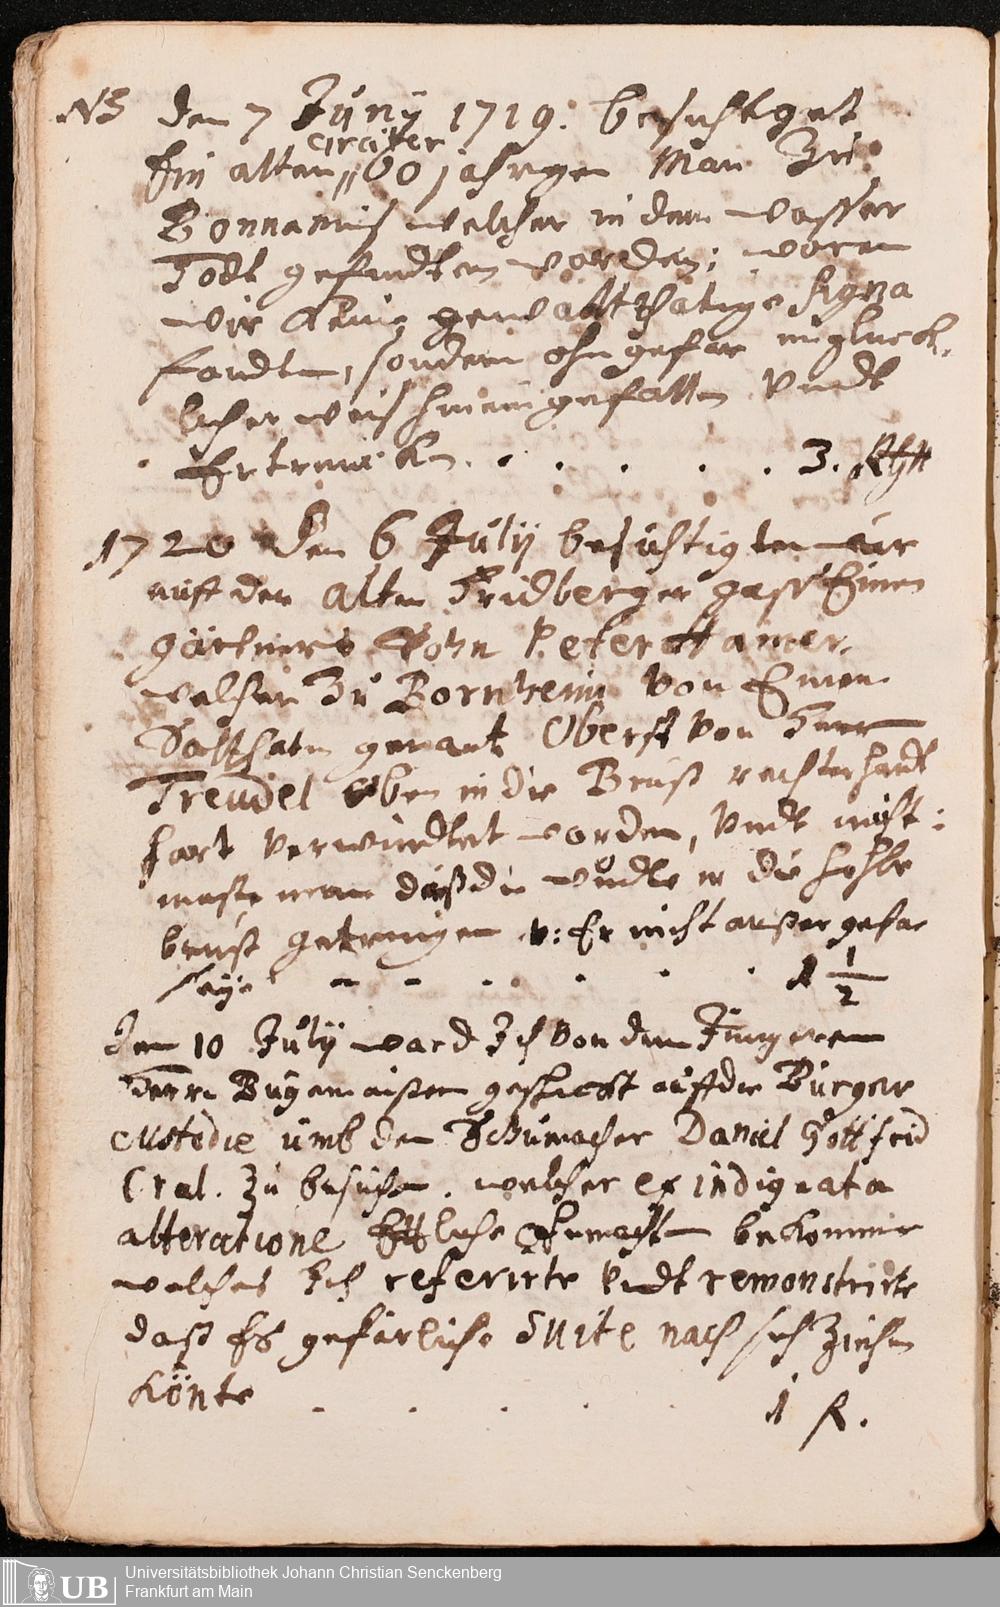 NB den 7 Juny 1719. besichtget
circiter
Ein alten 60 jahrgen Man Zu
Bonnames welcher in dem wasser
Todt gefundten worden; woran
wir Keine gewaltthatige signa
fandten, sondern ohngefar unglück-
licher weis hineingefallen Vndt
Ertruncken. . . . . . 3. Rthlr
1720 den 6 July besichtigten wir
auff der alten Fridberger gass Einen
gärtners Sohn Peter Hamer,
welcher Zu Bornheim von Einen
genant Oberst von Herr
Treudel oben in die Brust rechterhandt
hart verwundtet worden, Vndt muth-
maste man das die wundte in die hohle
brust getrungen v: Er nicht ausser gefar
seye - - . . . . 1 1/2
Den 10 July ward Ich von dem Jüngeren
Herrn Bürgemaister geschickt auff die Bürger
Custodie umb den Schumacher Daniel Gottfrid
Cral. Zu besuchen. welcher ex indignata
alteratione Ettliche Ohnmachten bekommen
welches Ich referirte Vndt remonstrirte
dass Es gefärliche Suite nach sich Ziehen
Könte . . . . . 1 R.
UB Universitätsbibliothek Johann Christian Senckenberg
Frankfurt am Main